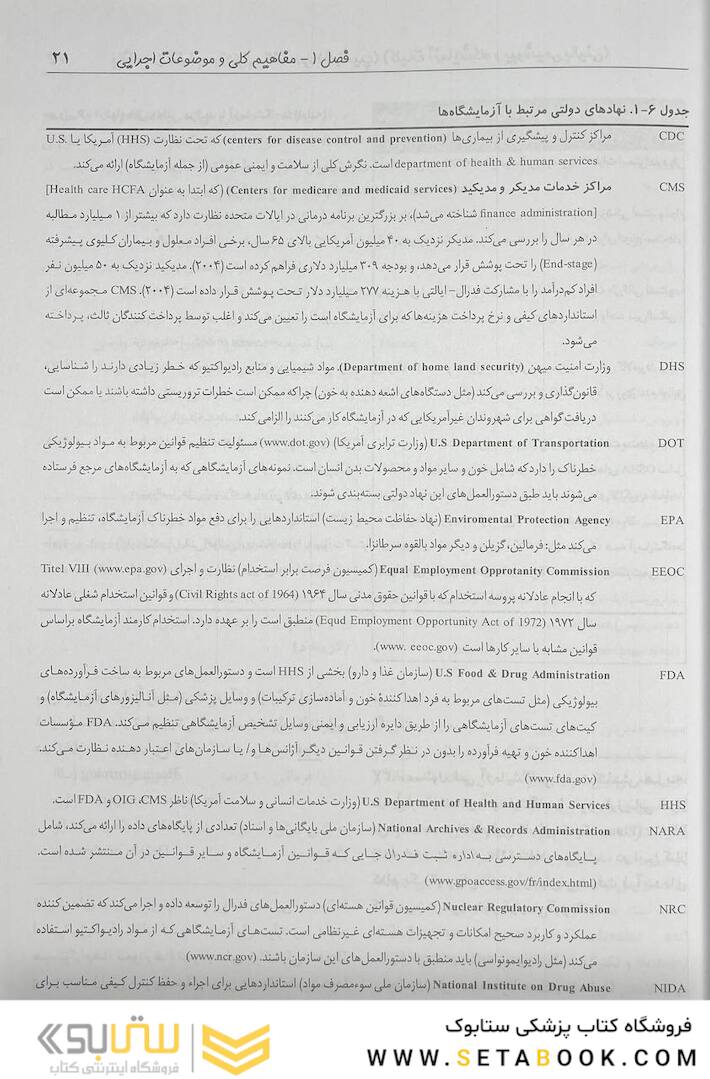 فصل ۱- مفاهیم کلی و موضوعات اجرایی ۲۱
جدول ۶-۱. نهادهای دولتی مرتبط با آزمایشگاه‌ها
CDC مراکز کنترل و پیشگیری از بیماری‌ها (centers for disease control and prevention) که تحت نظارت (HHS) آمریکا یا U.S.
department of health & human services است. نگرش کلی از سلامت و ایمنی عمومی (از جمله آزمایشگاه) ارائه می‌کند.
CMS مراکز خدمات مدیکر و مدیکید (Centers for medicare and medicaid services) (که ابتدا به عنوان Health care HCFA]
[finance administration شناخته می‌شد)، بر بزرگترین برنامه درمانی در ایالات متحده نظارت دارد که بیشتر از ۱ میلیارد مطالبه
در هر سال را بررسی می‌کند. مدیکر نزدیک به ۴۰ میلیون آمریکایی بالای ۶۵ سال، برخی افراد معلول و بیماران کلیوی پیشرفته
(End-stage) را تحت پوشش قرار می‌دهد، و بودجه ۳۰۹ میلیارد دلاری فراهم کرده است (۲۰۰۴). مدیکید نزدیک به ۵۰ میلیون نفر
افراد کم‌درآمد را با مشارکت فدرال- ایالتی با هزینه ۲۷۷ میلیارد دلار تحت پوشش قرار داده است (۲۰۰۴). CMS مجموعه‌ای از
استانداردهای کیفی و نرخ پرداخت هزینه‌ها که برای آزمایشگاه است را تعیین می‌کند و اغلب توسط پرداخت کنندگان ثالث، پرداخته
می‌شود.
DHS وزارت امنیت میهن (Department of home land security). مواد شیمیایی و منابع رادیواکتیو که خطر زیادی دارند را شناسایی،
قانون‌گذاری و بررسی می‌کند (مثل دستگاه‌های اشعه دهنده به خون) چرا که ممکن است خطرات تروریستی داشته باشند یا ممکن است
دریافت گواهی برای شهروندان غیرآمریکایی که در آزمایشگاه کار می‌کنند را الزامی کند.
DOT U.S Department of Transportation (وزارت ترابری آمریکا) (www.dot.gov) مسئولیت تنظیم قوانین مربوط به مواد بیولوژیکی
خطرناک را دارد که شامل خون و سایر مواد و محصولات بدن انسان است. نمونه‌های آزمایشگاهی که به آزمایشگاه‌های مرجع فرستاده
می‌شوند باید طبق دستورالعمل‌های این نهاد دولتی بسته‌بندی شوند.
EPA Enviromental Protection Agency (نهاد حفاظت محیط زیست) استانداردهایی را برای دفع مواد خطرناک آزمایشگاه، تنظیم و اجرا
می‌کند مثل: فرمالین، گزیلن و دیگر مواد بالقوه سرطانزا.
EEOC Equal Employment Opprotanity Commission (کمیسیون فرصت برابر استخدام) نظارت و اجرای (www.epa.gov) Titel VIII
که با انجام عادلانه پروسه استخدام که با قوانین حقوق مدنی سال ۱۹۶۴ (Civil Rights act of 1964) و قوانین استخدام شغلی عادلانه
سال ۱۹۷۲ (Equd Employment Opportunity Act of 1972) منطبق است را بر عهده دارد. استخدام کارمند آزمایشگاه براساس
قوانین مشابه با سایر کارها است (www. eeoc.gov).
FDA U.S Food & Drug Administration (سازمان غذا و دارو) بخشی از HHS است و دستورالعمل‌های مربوط به ساخت فرآورده‌های
بیولوژیکی (مثل تست‌های مربوط به فرد اهدا کنندهٔ خون و آماده‌سازی ترکیبات) و وسایل پزشکی (مثل آنالیزورهای آزمایشگاه) و
کیت‌های تست‌های آزمایشگاهی را از طریق دایره ارزیابی و ایمنی وسایل تشخیص آزمایشگاهی تنظیم می‌کند. FDA مؤسسات
اهداکننده خون و تهیه فرآورده را بدون در نظر گرفتن قوانین دیگر آژانس‌ها و/ یا سازمان‌های اعتبار دهنده نظارت می‌کند.
(www.fda.gov)
HHS U.S Department of Health and Human Services (وزارت خدمات انسانی و سلامت آمریکا) ناظر OIG ،CMS و FDA است.
NARA National Archives & Records Administration (سازمان ملی بایگانی‌ها و اسناد) تعدادی از پایگاه‌های داده را ارائه می‌کند، شامل
پایگاه‌های دسترسی به اداره ثبت فدرال جایی که قوانین آزمایشگاه و سایر قوانین در آن منتشر شده است.
(www.gpoaccess.gov/fr/index.html)
NRC Nuclear Regulatory Commission (کمیسیون قوانین هسته‌ای) دستورالعمل‌های فدرال را توسعه داده و اجرا می‌کند که تضمین کننده
عملکرد و کاربرد صحیح امکانات و تجهیزات هسته‌ای غیرنظامی است. تست‌های آزمایشگاهی که از مواد رادیواکتیو استفاده
می‌کند (مثل رادیوایمونواسی) باید منطبق با دستورالعمل‌های این سازمان باشند. (www.ncr.gov)
NIDA National Institute on Drug Abuse (سازمان ملی سوءمصرف مواد) استانداردهایی برای اجراء و حفظ کنترل کیفی مناسب برای
فروشگاه کتاب پزشکی ستابوک
WWW.SETABOOK.COM
ستابوک
فروشگاه اینترنتی کتاب